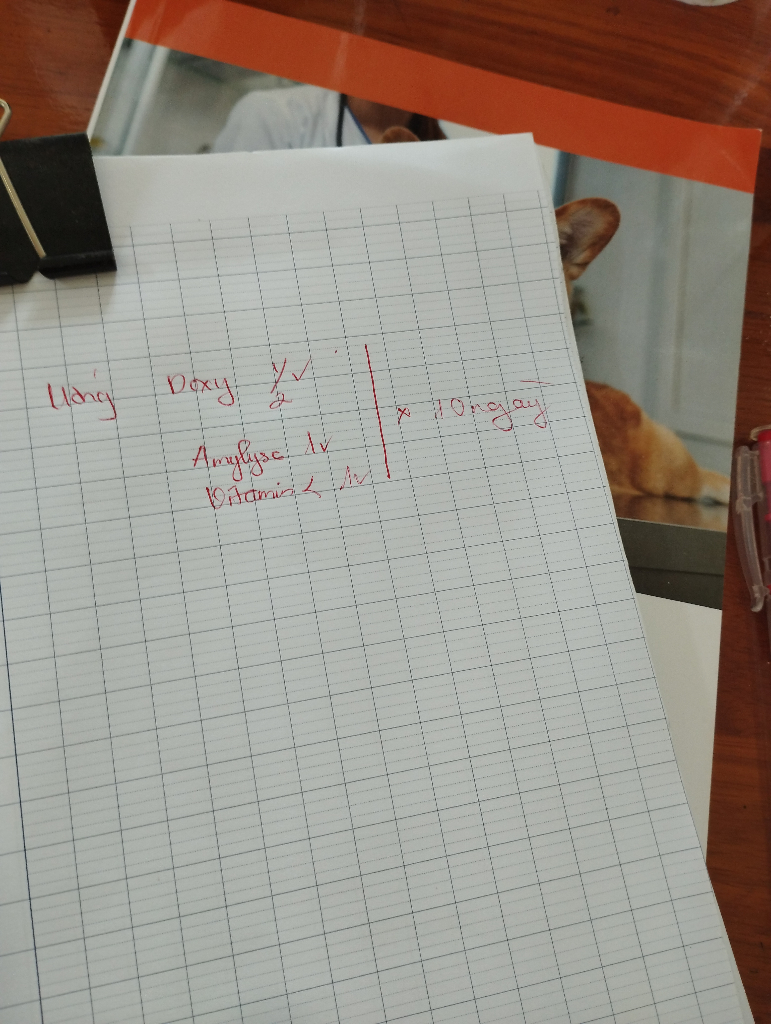 Uống Doxy 1/2 v
Amylyse 1v
Vitamin C 1v
x 10 ngày